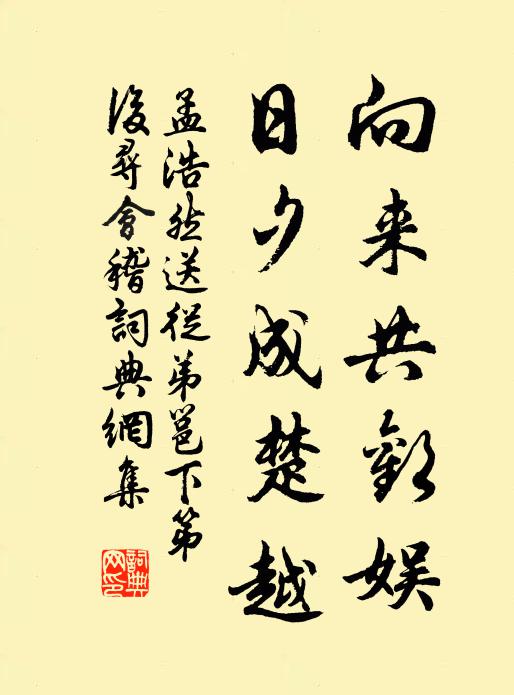 向来共歡娱
日夕成楚越
孟浩然送從弟邕下第
後尋會稽詞典網集
詞典网印